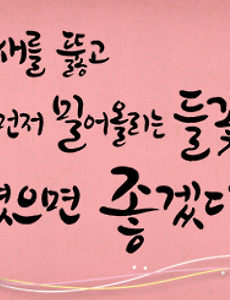 새를 뚫고
먼저 밀어올리는 들꽃
였으면 좋겠다